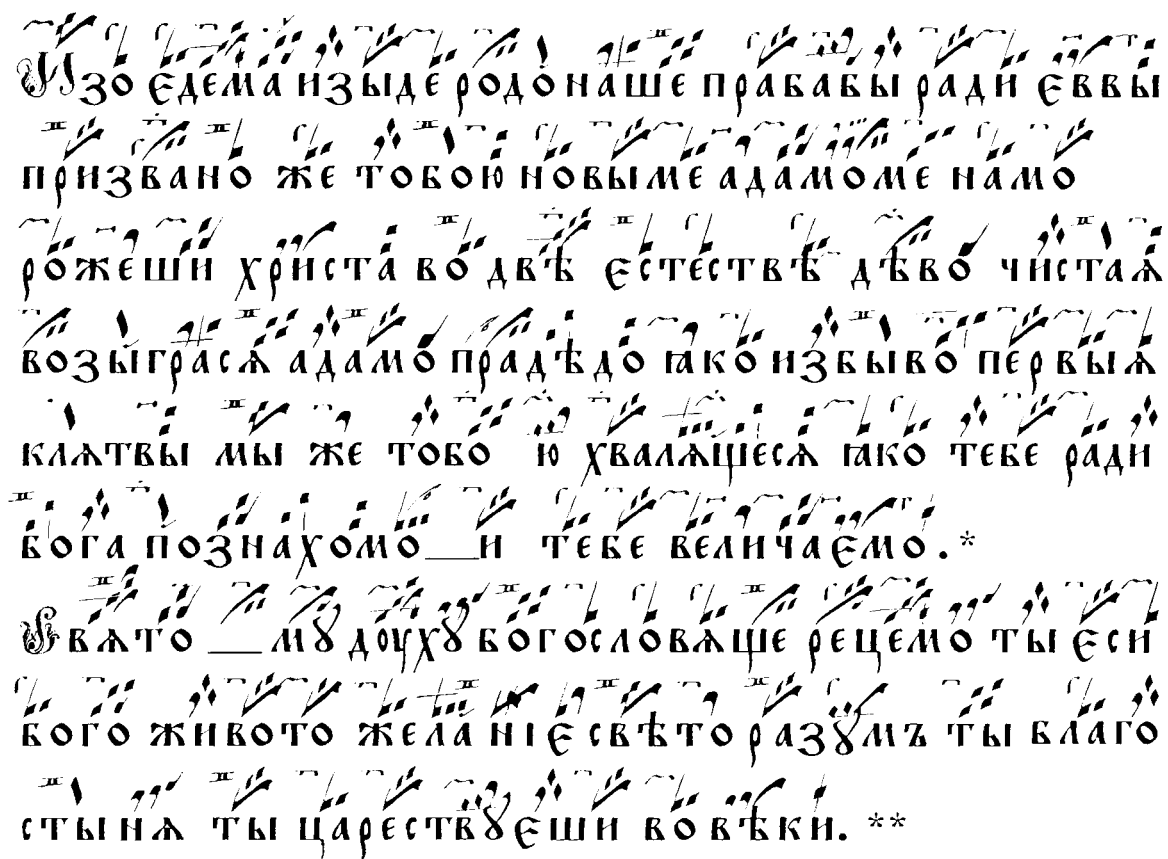 Изо едема изыде родо наше прабабы ради еввы
призвано же тобою новыме адамоме намо
рожеши христа во двѣ естествѣ дѣво чистая
возыграся адамо прадѣдо ꙗко избыво первыѧ
клѧтвы мы же тобо ю хвалѧщесѧ ꙗко тебе ради
бога познахомо__и тебе величаемо.*
Свѧто __мꙋ доухꙋ богословѧще рецемо ты еси
бого живото желаніе свѣто разꙋмъ ты благо
стынѧ ты царествꙋеши во вѣки. **